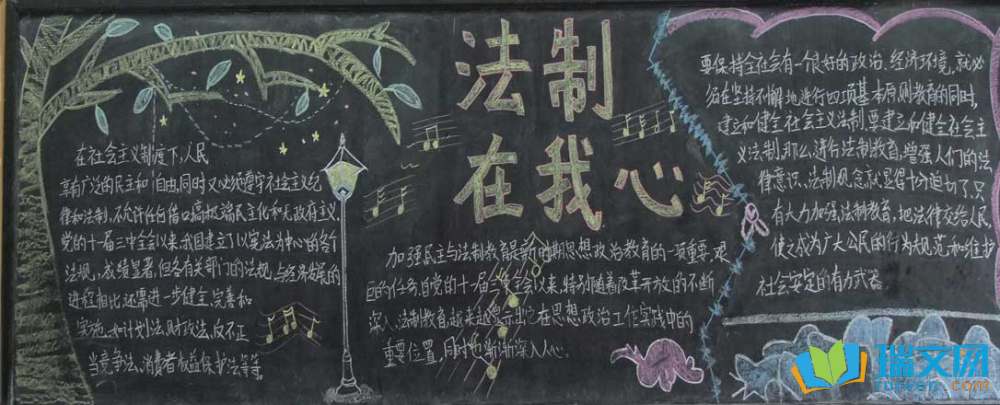 法制
在我心
在社会主义制度下,人民
享有广泛的民主和自由,同时又必须遵守社会主义纪
律和法制,不允许任何借口搞极端民主化和无政府主义.
党的十一届三中全会以来我国建立了以宪法为中心的各个
法规,成绩显著,但各有关部门的法规,与经济发展的
进程相比还需进一步健全完善和
实施,如计划法,财政法,反不正
当竞争法,消费者权益保护法等等.
加强民主与法制教育是新时期思想政治教育的一项重要,
的任务,自党的十一届三中全会以来,特别随着改革开放的不断
深入,法制教育越来越显示出它在思想政治工作实践中的
重要位置,同时也渐渐深入人心.
要保持全社会有一个很好的政治、经济环境,就必
须在坚持不懈地进行四项基本原则教育的同时,
建立和健全社会主义法制,要建立和健全社会主
义法制,那么,进行法制教育,增强人们的法
律意识、法制观念就显得十分迫切了.只
有大力加强法制教育,把法律交给人民,
使之成为广大公民的行为规范和维护
社会安定的有力武器
瑞文网